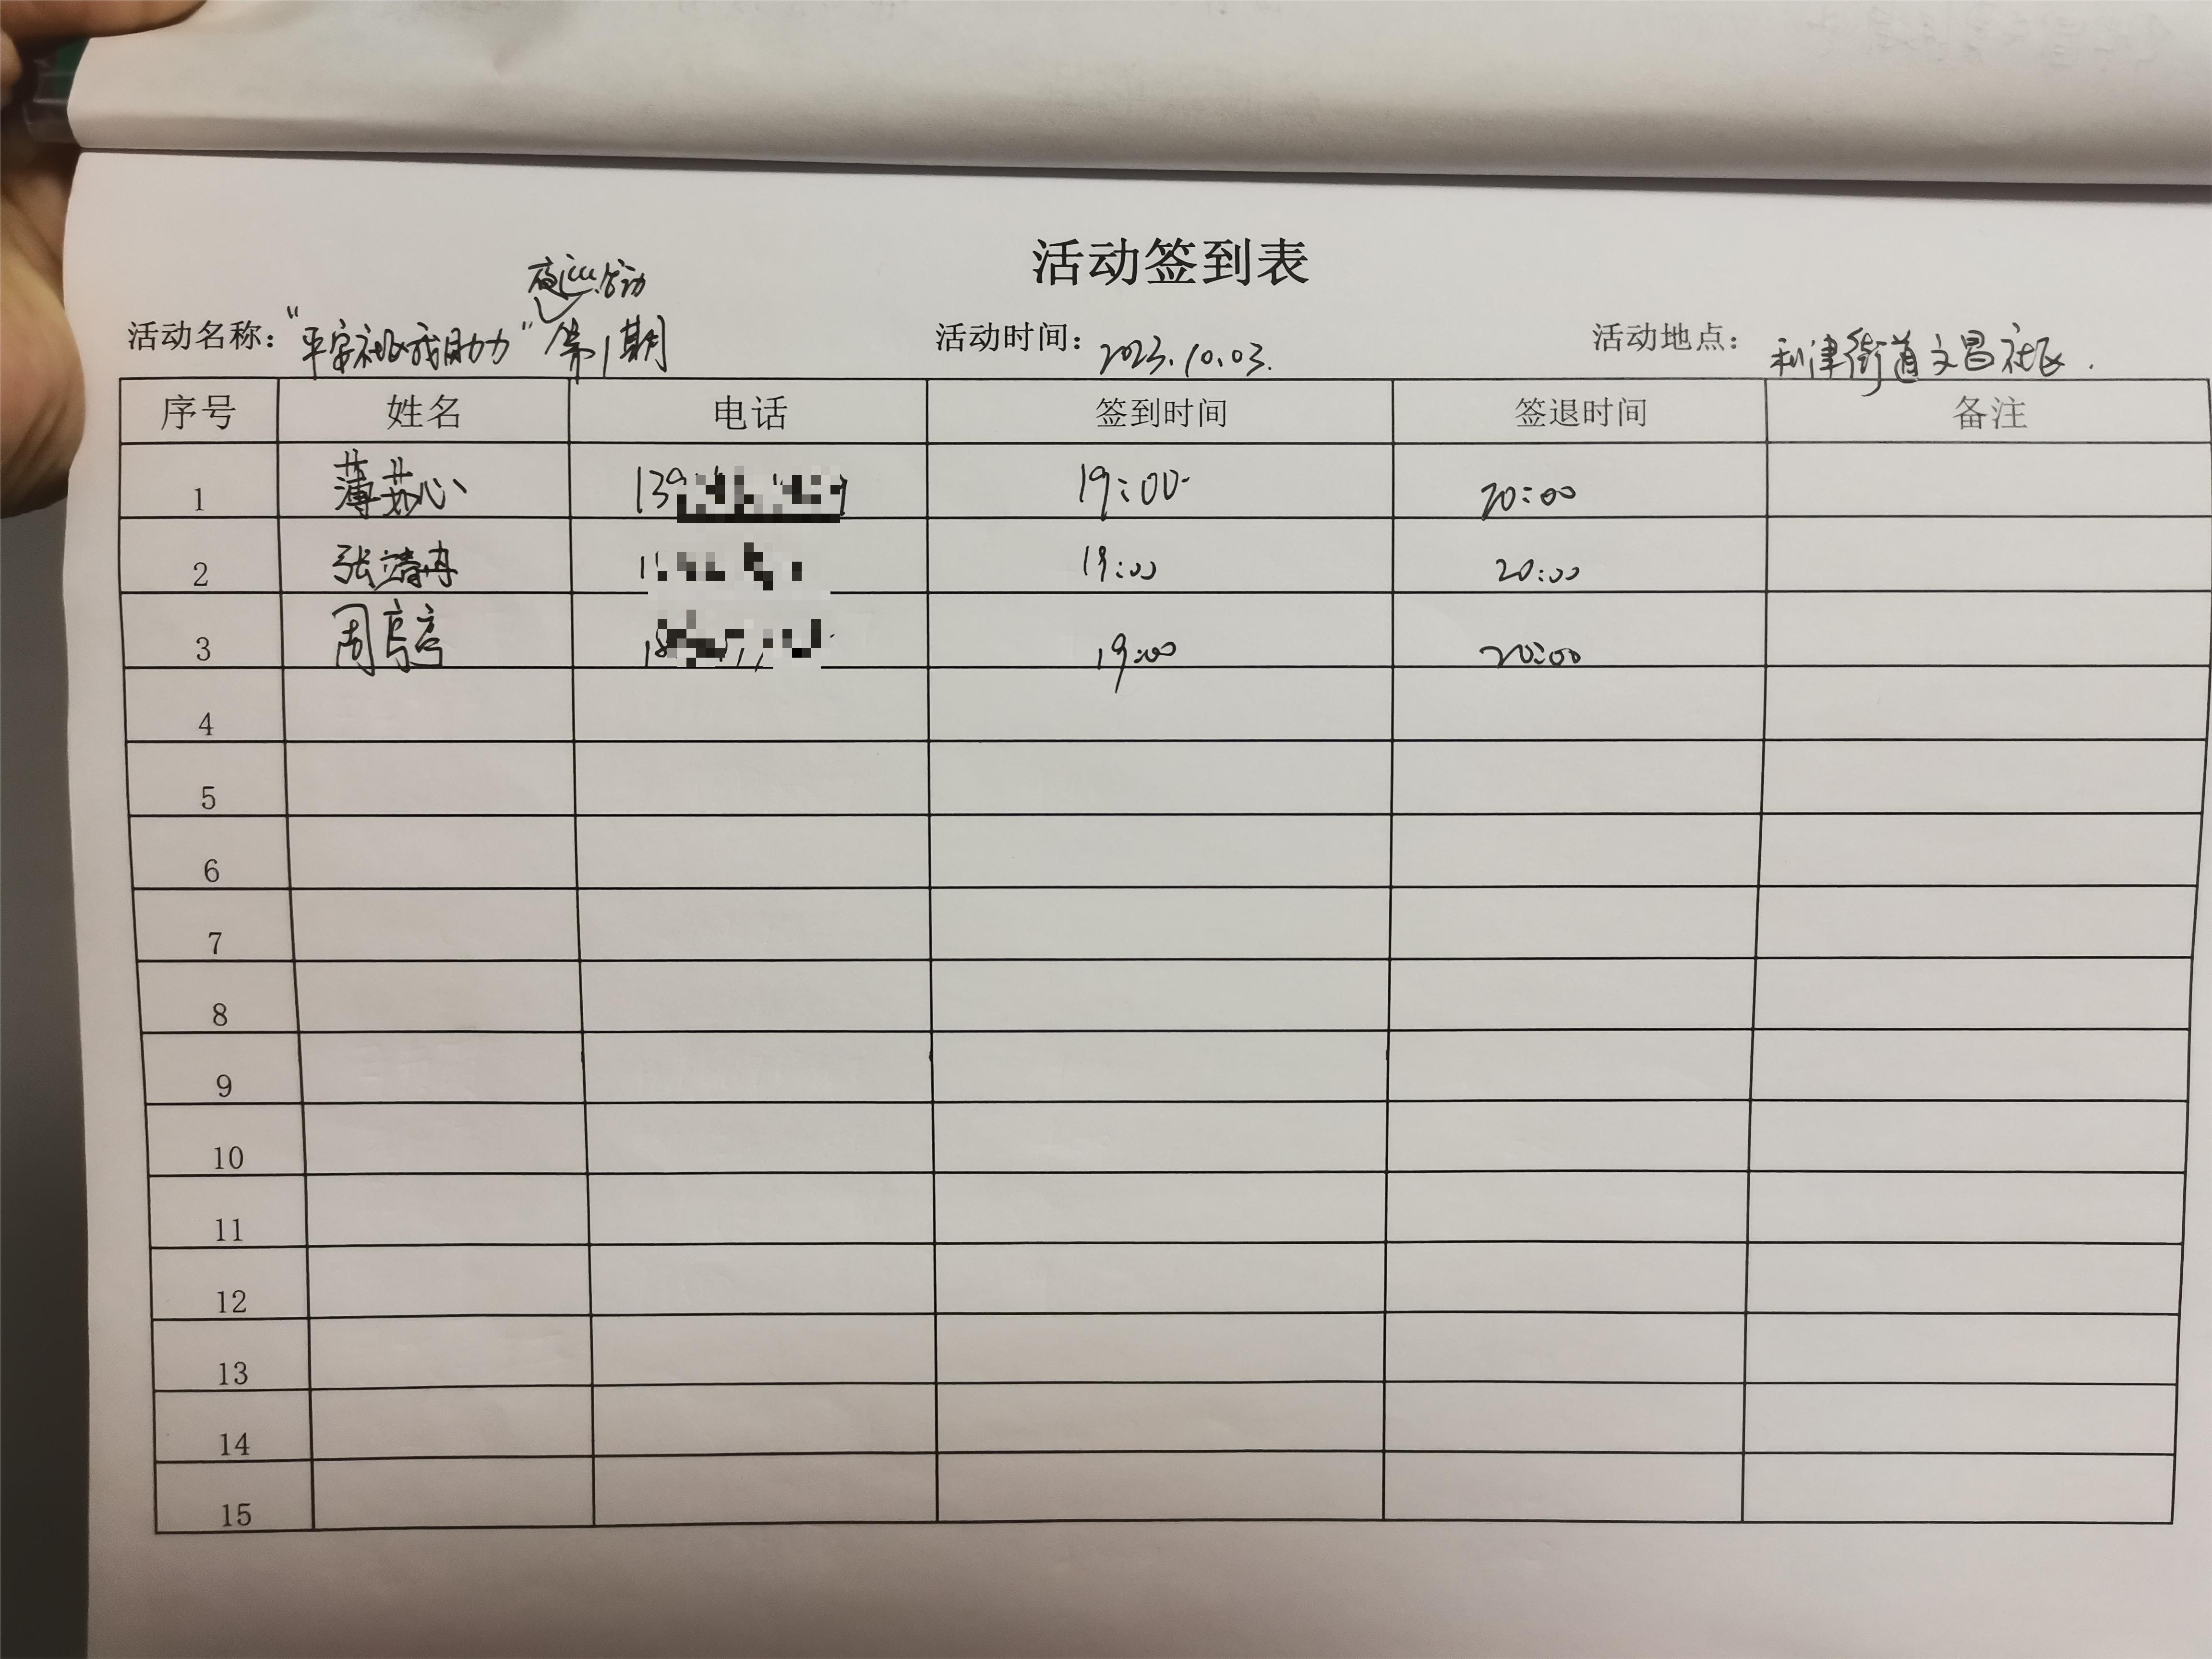 活动签到表
夜巡活动
活动名称：“平安社区我助力”第1期 活动时间：2023.10.03. 活动地点：利津街道文昌社区.
序号 姓名 电话 签到时间 签退时间 备注
1 薄苏心 139 19:00 20:00
2 张靖冉 1 19:00 20:00
3 周亭亭 18 19:00 20:00
4
5
6
7
8
9
10
11
12
13
14
15